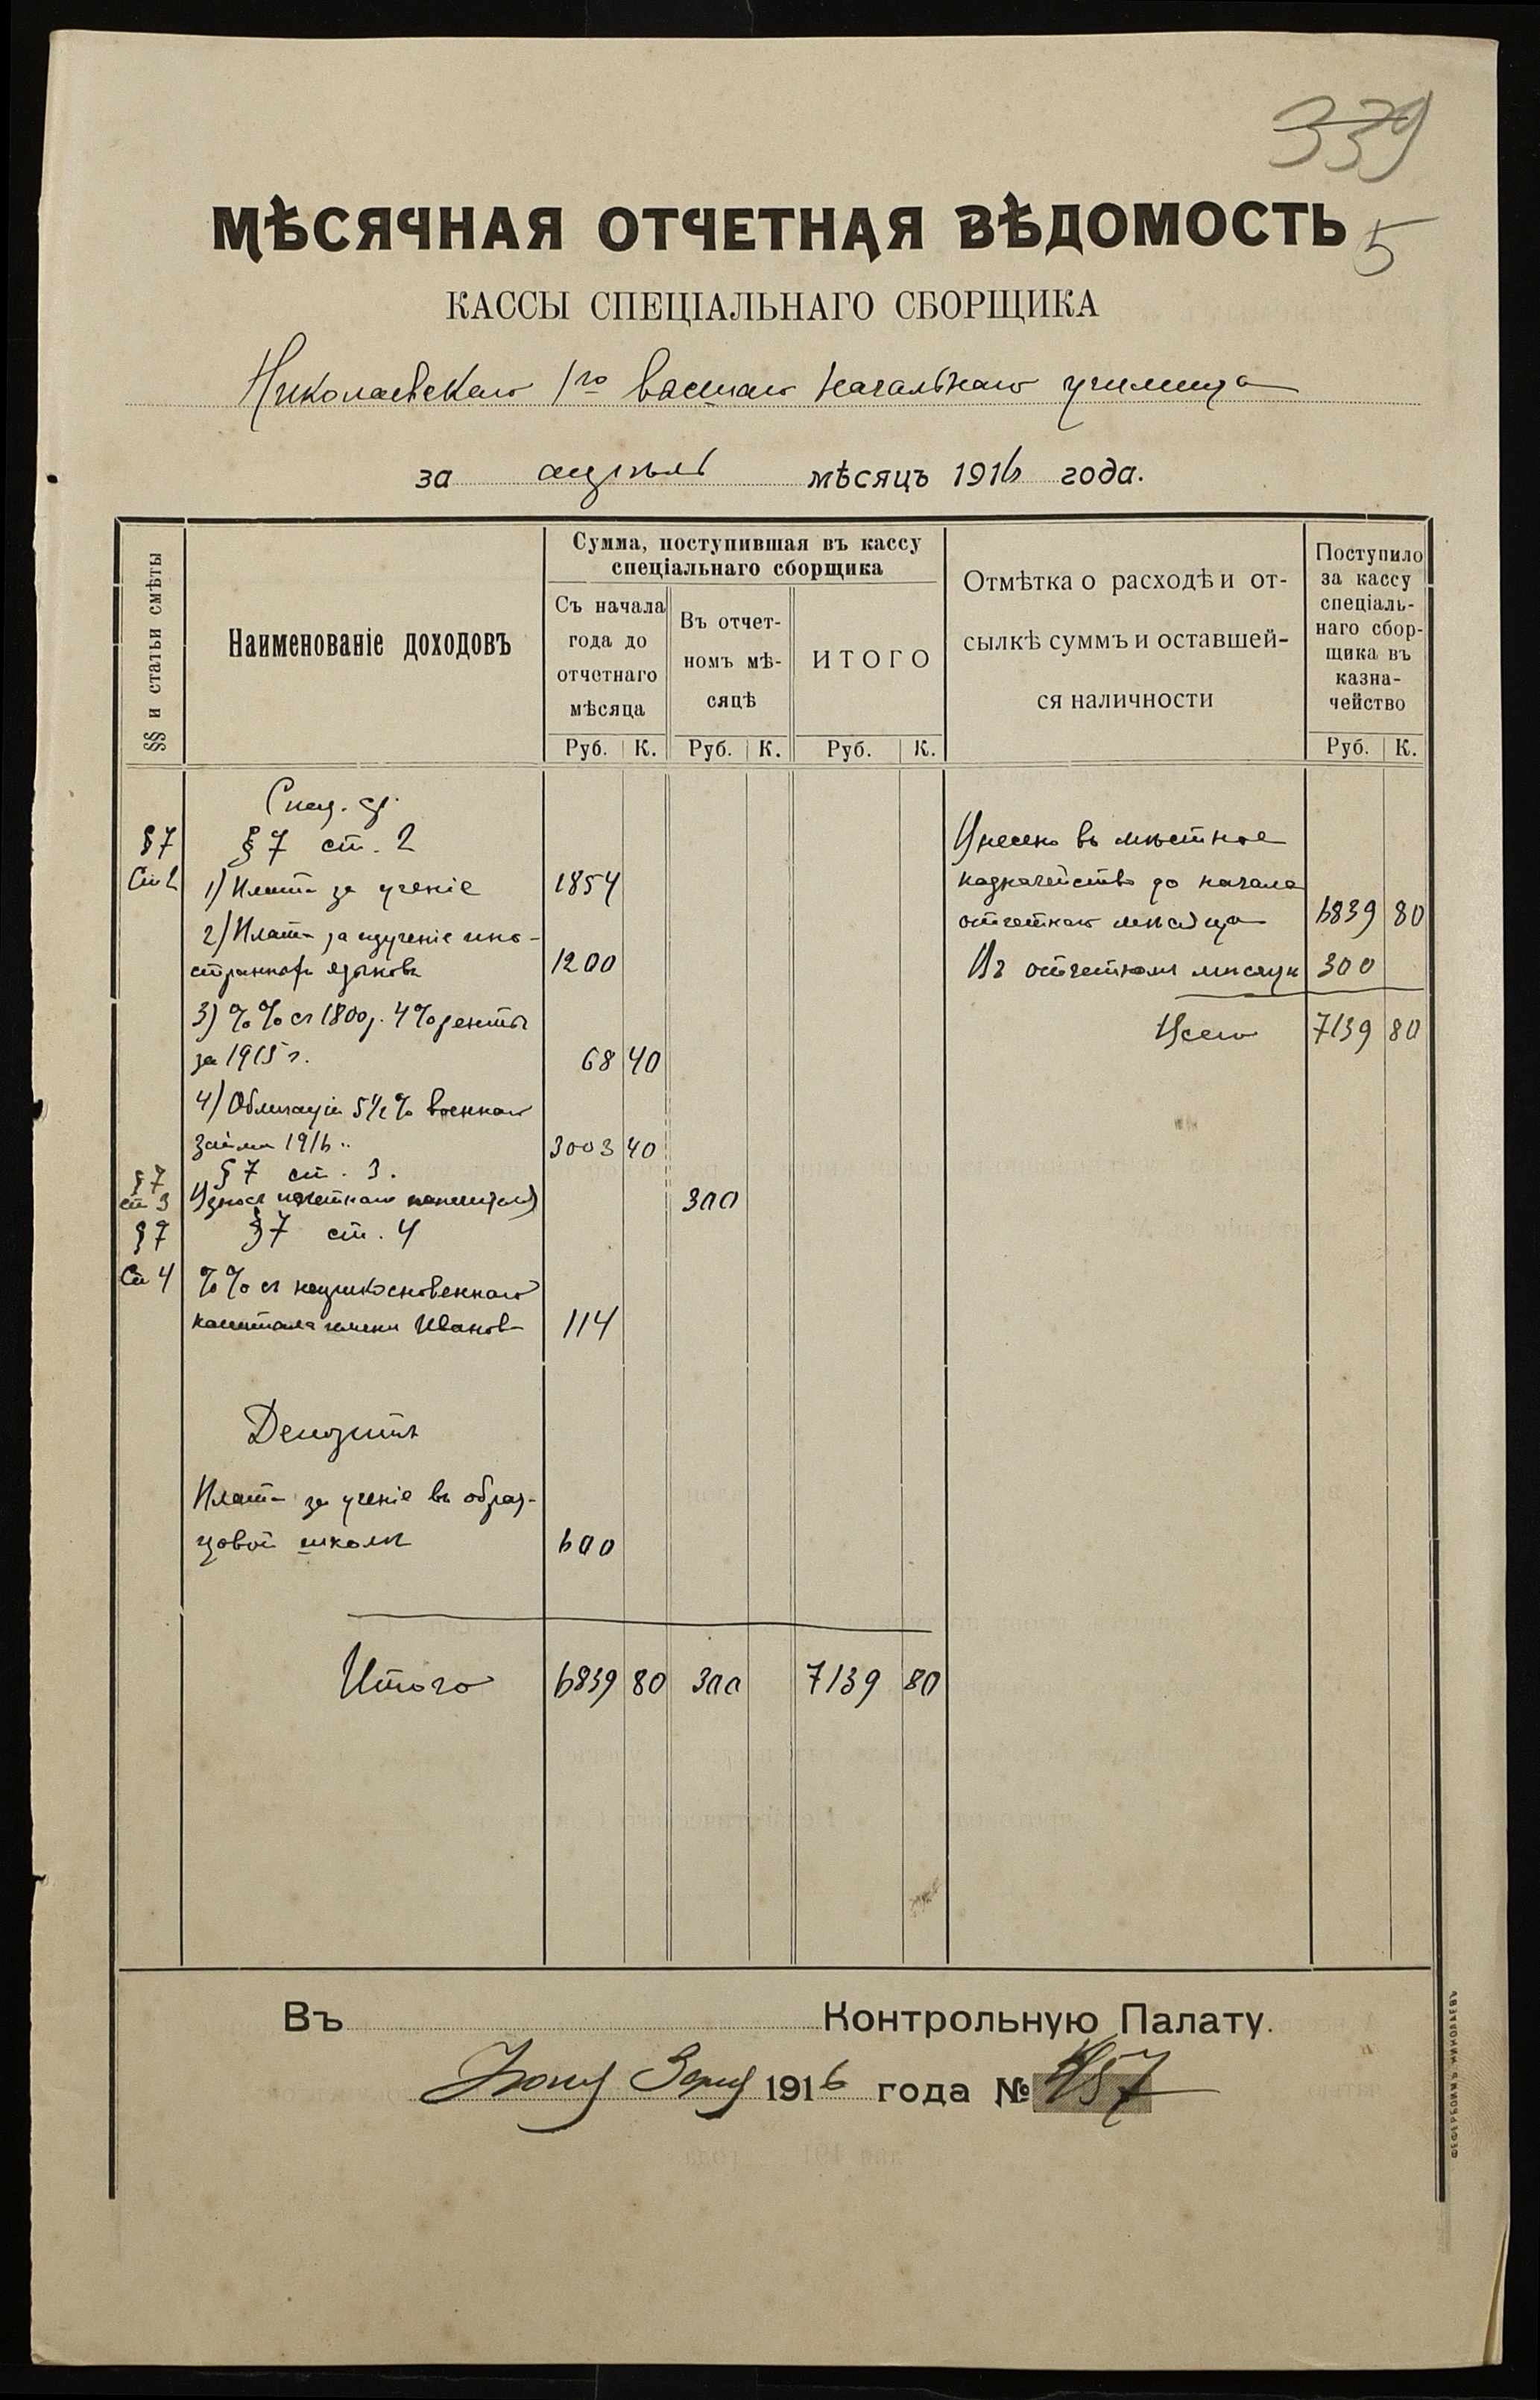 339
5
МѢСЯЧНАЯ ОТЧЕТНАЯ ВѢДОМОСТЬ
КАССЫ СПЕЦІАЛЬНАГО СБОРЩИКА
Николаевскаго 1го высшаго начальнаго училища
за апрѣль мѣсяцъ 1916 года.
§§ и статьи смѣты
Наименованіе доходовъ
Сумма, поступившая въ кассу
спеціальнаго сборщика
Съ начала
года до
отчетнаго
мѣсяца
Въ отчет-
номъ мѣ-
сяцѣ
ИТОГО
Отмѣтка о расходѣ и от-
сылкѣ суммъ и оставшей-
ся наличности
Поступило
за кассу
спеціаль-
наго сбор-
щика въ
казна-
чейство
Руб. К. Руб. К. Руб. К. Руб. К.
Спец. ср.
§7 §7 ст. 2
Ст 2 1) Плата за ученіе 1854
2) Плата за изученіе ино-
странныхъ языковъ 1200
3) %% съ 1800 р. 4% ренты
за 1915 г. 68 40
4) Облигаціи 5½% военнаго
займа 1916 г. 3003 40
§7 §7 ст. 3.
ст 3 Взносъ почетнаго попечителя 300
§7 §7 ст. 4
Ст 4 %% съ неприкосновеннаго
капитала имени Иванова 114
Депозиты
Плата за ученіе въ образ-
цовой школѣ 600
Итого 6839 80 300 7139 80
Внесено въ мѣстное
казначейство до начала
отчетнаго мѣсяца 6839 80
Въ отчетномъ мѣсяцѣ 300
Всего 7139 80
Въ Контрольную Палату.
1916 года № 457
ФЕФЕРБОЙМЪ НИКОЛАЕВЪ